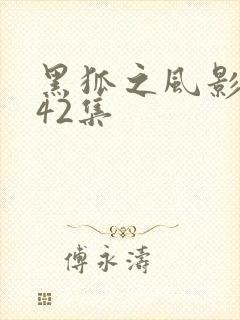 黑狐之风影
42集
傅永濤